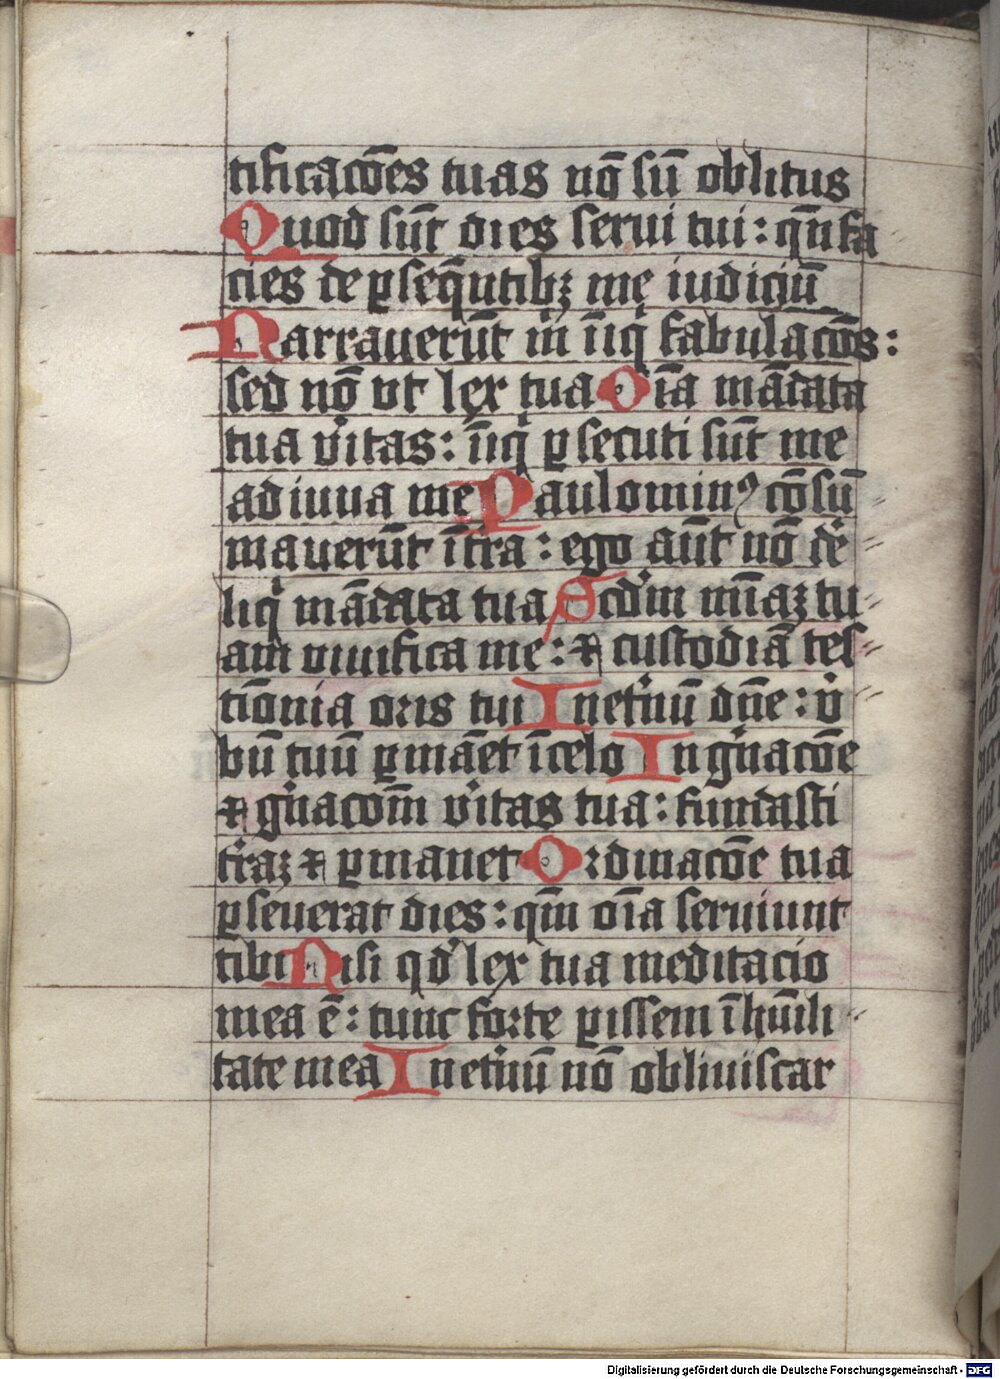 tificacōes tuas nō sū oblitus
Quod sūt dies serui tui: qn̄ fa
cies de ꝑseq̄ntibꝫ me iudiciū
Narrauerūt m̄ iniq̇ fabulacōs:
sed nō vt lex tua Oīa mādata
tua v̇itas: inīq̇ ꝑsecuti sūt me
adiuua me Paulominꝰ cōsū
mauerūt ī tra: ego aūt nō de
liq̇ mādata tua Scdm̄ mīaꝫ tu
am viuifica me: ⁊ custodiā tes
tiōnia oris tui In et̓nū dn̄e: v̇
bū tuū ꝑmāet ī celo In gn̓acōe
⁊ gn̓acom̄ v̇itas tua: fundasti
tr̓aꝫ ⁊ ꝑmanet Ordinacōe tua
ꝑseuerat dies: qm̄ oīa seruiunt
tibi Nisi qd̓ lex tua meditacio
mea ē: tunc forte ꝑissem ī hūili
tate mea In et̓nū nō obliuiscar
Digitalisierung gefördert durch die Deutsche Forschungsgemeinschaft - DFG